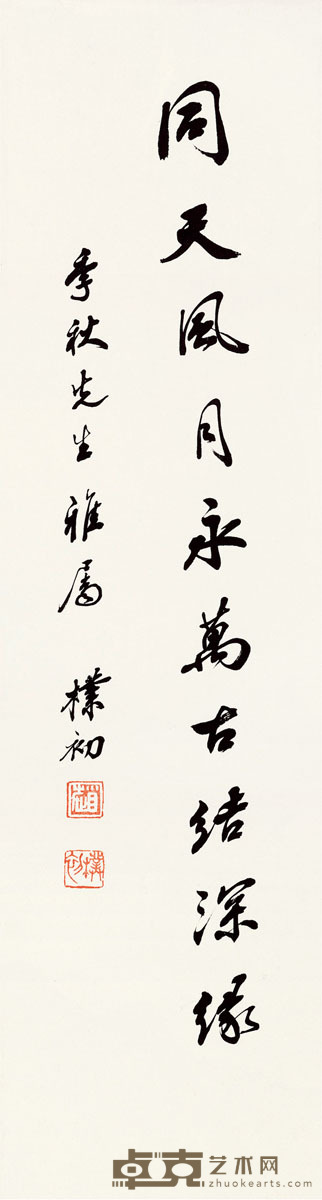 同天風月永萬古结深缘
季秋先生雅屬 樸初
趙
樸初
卓克艺术网
zhuokearts.com